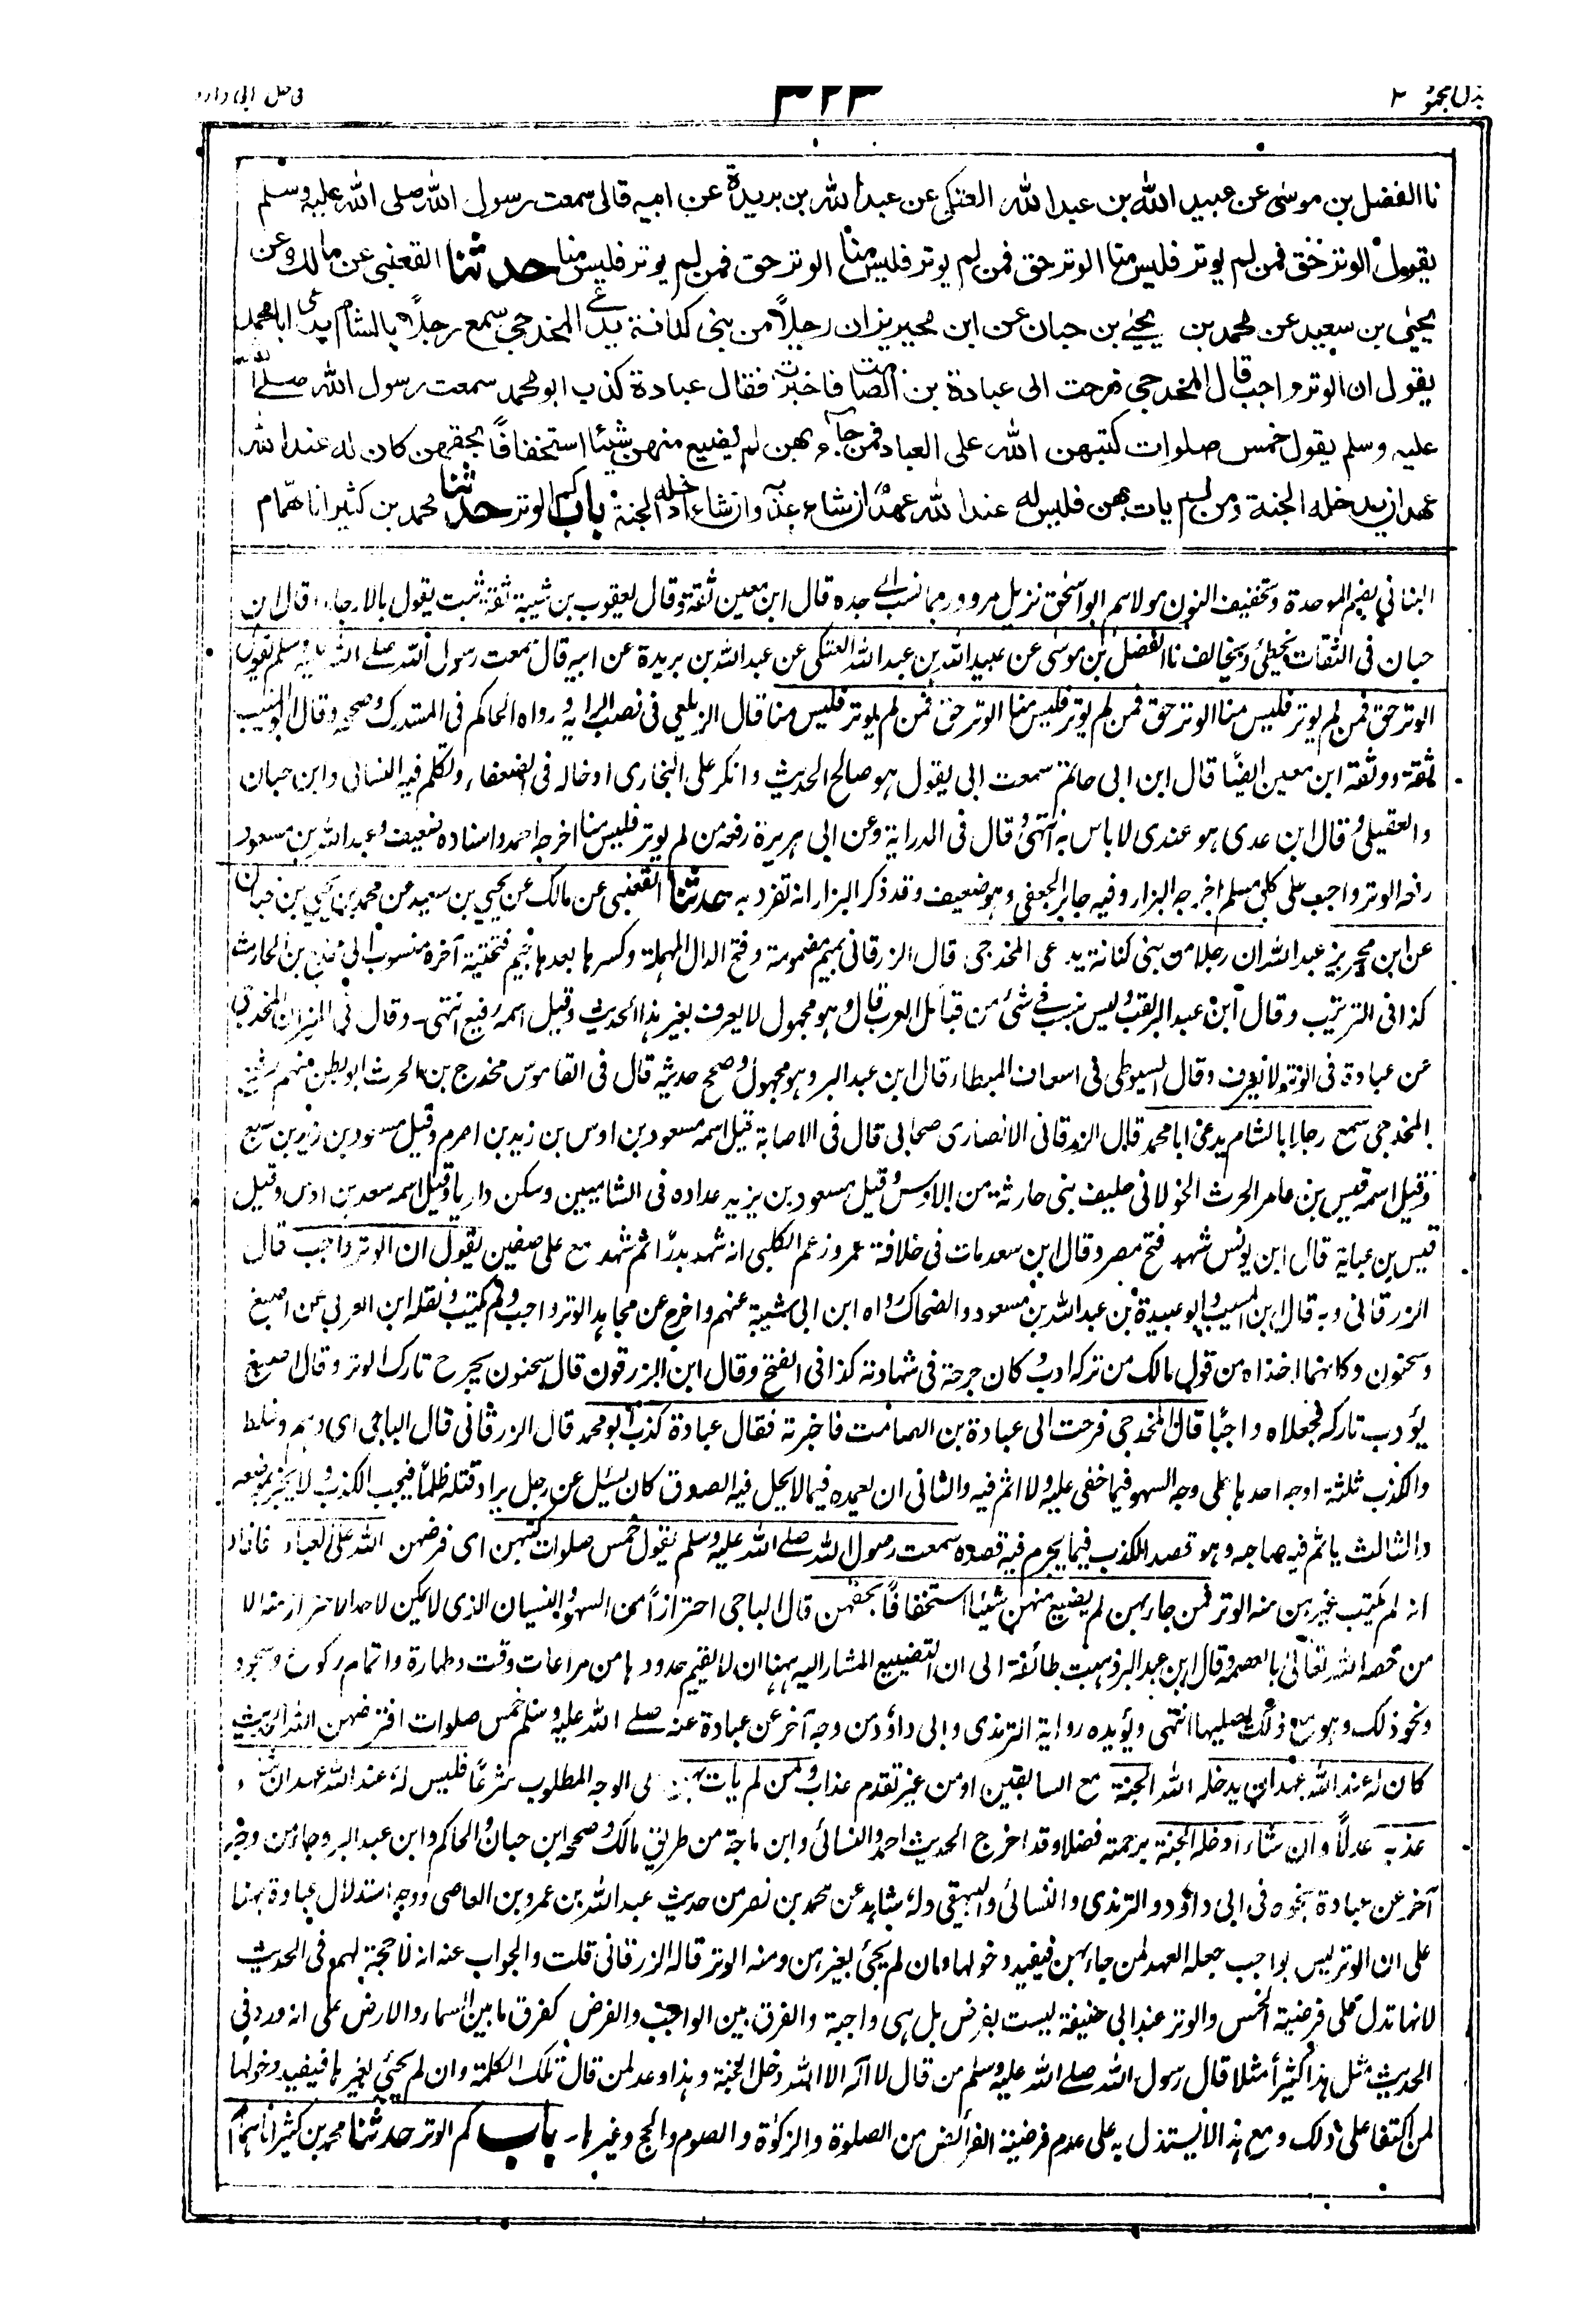 بذل المجهود ٢
٣٢٣
فى حل ابى داود
نا الفضل بن موسى عن عبيد الله بن عبد الله العتكى عن عبد الله بن بريدة عن ابيه قال سمعت رسول الله صلى الله عليه وسلم
يقول الوتر حق فمن لم يوتر فليس منا الوتر حق فمن لم يوتر فليس منا الوتر حق فمن لم يوتر فليس منا حدثنا القعنبى عن مالك عن
يحيى بن سعيد عن محمد بن يحيى بن حبان عن ابن محيريز ان رجلاً من بنى كنانة يدعى المخدجى سمع رجلاً بالشام يدعى ابا محمد
يقول ان الوتر واجب قال المخدجى فرحت الى عبادة بن الصامت فاخبرته فقال عبادة كذب ابو محمد سمعت رسول الله صلى الله
عليه وسلم يقول خمس صلوات كتبهن الله على العباد فمن جاء بهن لم يضيع منهن شيئا استخفافاً بحقهن كان له عند الله
عهد ان يدخله الجنة ومن لم يات بهن فليس له عند الله عهد ان شاء عذبه وان شاء ادخله الجنة باب كم الوتر حدثنا محمد بن كثير انا همام
البنانى بضم الموحدة وتخفيف النون مولاهم ابو اسحق نزيل مرو وربما نسب الى جده قال ابن معين ثقة وقال يعقوب بن شيبة ثقة ثبت يقول بالارجاء وقال ابن
حبان فى الثقات يخطئ ويخالف نا الفضل بن موسى عن عبيد الله بن عبد الله العتكى عن عبد الله بن بريدة عن ابيه قال سمعت رسول الله صلى الله عليه وسلم يقول
الوتر حق فمن لم يوتر فليس منا الوتر حق فمن لم يوتر فليس منا الوتر حق فمن لم يوتر فليس منا قال الزيلعى فى نصب الراية ورواه الحاكم فى المستدرك وصححه وقال ابو المنيب
ثقة ووثقه ابن معين ايضًا قال ابن ابى حاتم سمعت ابى يقول هو صالح الحديث وانكر على البخارى ادخاله فى الضعفاء وتكلم فيه النسائى وابن حبان
والعقيلى وقال ابن عدى هو عندى لا باس به انتهى وقال فى الدراية وعن ابى هريرة رفعه من لم يوتر فليس منا اخرجه احمد واسناده ضعيف وعبد الله بن مسعود
رفعه الوتر واجب على كل مسلم اخرجه البزار وفيه جابر الجعفى وهو ضعيف وقد ذكر البزار انه تفرد به حدثنا القعنبى عن مالك عن يحيى بن سعيد عن محمد بن يحيى بن حبان
عن ابن محيريز عبد الله ان رجلا من بنى كنانة يدعى المخدجى قال الزرقانى بميم مضمومة وفتح الدال المهملة وكسرها بعدها جيم فتحتية آخره منسوب الى مخدج بن الحارث
كذا فى الترتيب وقال ابن عبد البر لقب وليس بنسب فى شئ من قبائل العرب قال وهو مجهول لا يعرف بغير هذا الحديث وقيل اسمه رفيع انتهى۔ وقال فى الميزان المخدجى
عن عبادة فى الوتر لا يعرف وقال السيوطى فى اسعاف المبطاء قال ابن عبد البر وهو مجهول وصحح حديثه قال فى القاموس مخدج بن الحرث ابو بطن منهم رفيع
المخدجى سمع رجلا بالشام يدعى ابا محمد قال الزرقانى الانصارى صحابى قال فى الاصابة قيل اسمه مسعود بن اوس بن زيد بن اصرم وقيل مسعود بن زيد بن سبيع
وقيل اسمه قيس بن عامر الحرث الخولانى حليف بنى حارثة من الاوس وقيل مسعود بن يزيد عداده فى الشاميين وسكن داريا وقيل اسمه سعد بن اوس وقيل
قيس بن عباية قال ابن يونس شهد فتح مصر وقال ابن سعد مات فى خلافة عمر وزعم الكلبى انه شهد بدرًا ثم شهد مع على صفين يقول ان الوتر واجب قال
الزرقانى وبه قال ابن المسيب وابو عبيدة بن عبد الله بن مسعود والضحاك رواه ابن ابى شيبة عنهم واخرج عن مجاهد الوتر واجب ولم يكتب ونقله ابن العربى عن اصبغ
وسحنون وكانهما اخذاه من قول مالك من تركه ادب وكان جرحة فى شهادته كذا فى الفتح وقال ابن الزرقون قال سحنون يجرح تارك الوتر وقال اصبغ
يؤدب تاركه فجعلاه واجبًا قال المخدجى فرحت الى عبادة بن الصامت فاخبرته فقال عبادة كذب ابو محمد قال الزرقانى قال الباجى اى وهم وغلط
والكذب ثلثة اوجه احدها على وجه السهو فيما خفى عليه ولا اثم فيه والثانى ان يعمده فيما لا يحل فيه الصدق كان يسئل عن رجل يراد قتله ظلماً فيجب الكذب ولا يخبر بموضعه
والثالث ياثم فيه صاحبه وهو قصد الكذب فيما يحرم فيه قصده سمعت رسول الله صلى الله عليه وسلم يقول خمس صلوات كتبهن اى فرضهن الله على العباد فافاد
انه لم يكتب غيرهن منه الوتر فمن جاء بهن لم يضيع منهن شيئا استخفافًا بحقهن قال الباجى احترازاً من السهو والنسيان الذى لا يمكن لاحد الاحتراز منه الا
من خصه الله تعالى بالعصمة وقال ابن عبد البر ذهبت طائفة الى ان التضييع المشار اليه ههنا ان لا يقيم حدودها من مراعات وقت وطهارة واتمام ركوع وسجود
ونحو ذلك وهو مع ذلك يصليها انتهى ويؤيده رواية الترمذى وابى داؤد من وجه آخر عن عبادة عنه صلى الله عليه وسلم خمس صلوات افترضهن الله الحديث
كان له عند الله عهد ان يدخله الله الجنة مع السابقين او من غير تقدم عذاب ومن لم يات بهن على الوجه المطلوب شرعًا فليس له عند الله عهد ان شاء
عذبه عدلاً وان شاء ادخله الجنة برحمته فضلا وقد اخرج الحديث احمد والنسائى وابن ماجة من طريق مالك وصححه ابن حبان والحاكم وابن عبد البر وجاء من وجه
آخر عن عبادة بنحوه فى ابى داؤد والترمذى والنسائى والبيهقى وله شاهد عن محمد بن نصر من حديث عبد الله بن عمرو بن العاصى ووجه استدلال عبادة بهذا
على ان الوتر ليس بواجب جعله العهد لمن جاء بهن فيفيد دخولها وان لم يجئ بغيرهن ومنه الوتر قاله الزرقانى قلت والجواب عنه انه لا حجة لهم فى الحديث
لانها تدل على فرضية الخمس والوتر عند ابى حنيفة ليست بفرض بل هى واجبة والفرق بين الواجب والفرض كفرق ما بين السماء والارض على انه ورد فى
الحديث مثل هذا كثيرأ مثلا قال رسول الله صلى الله عليه وسلم من قال لا اله الا الله دخل الجنة وهذا وعد لمن قال تلك الكلمة وان لم يجئ بغيرها فيفيد دخولها
لمن اكتفا على ذلك ومع هذا لا يستدل به على عدم فرضية الفرائض من الصلوة والزكوة والصوم والحج وغيرها۔ باب كم الوتر حدثنا محمد بن كثير انا همام